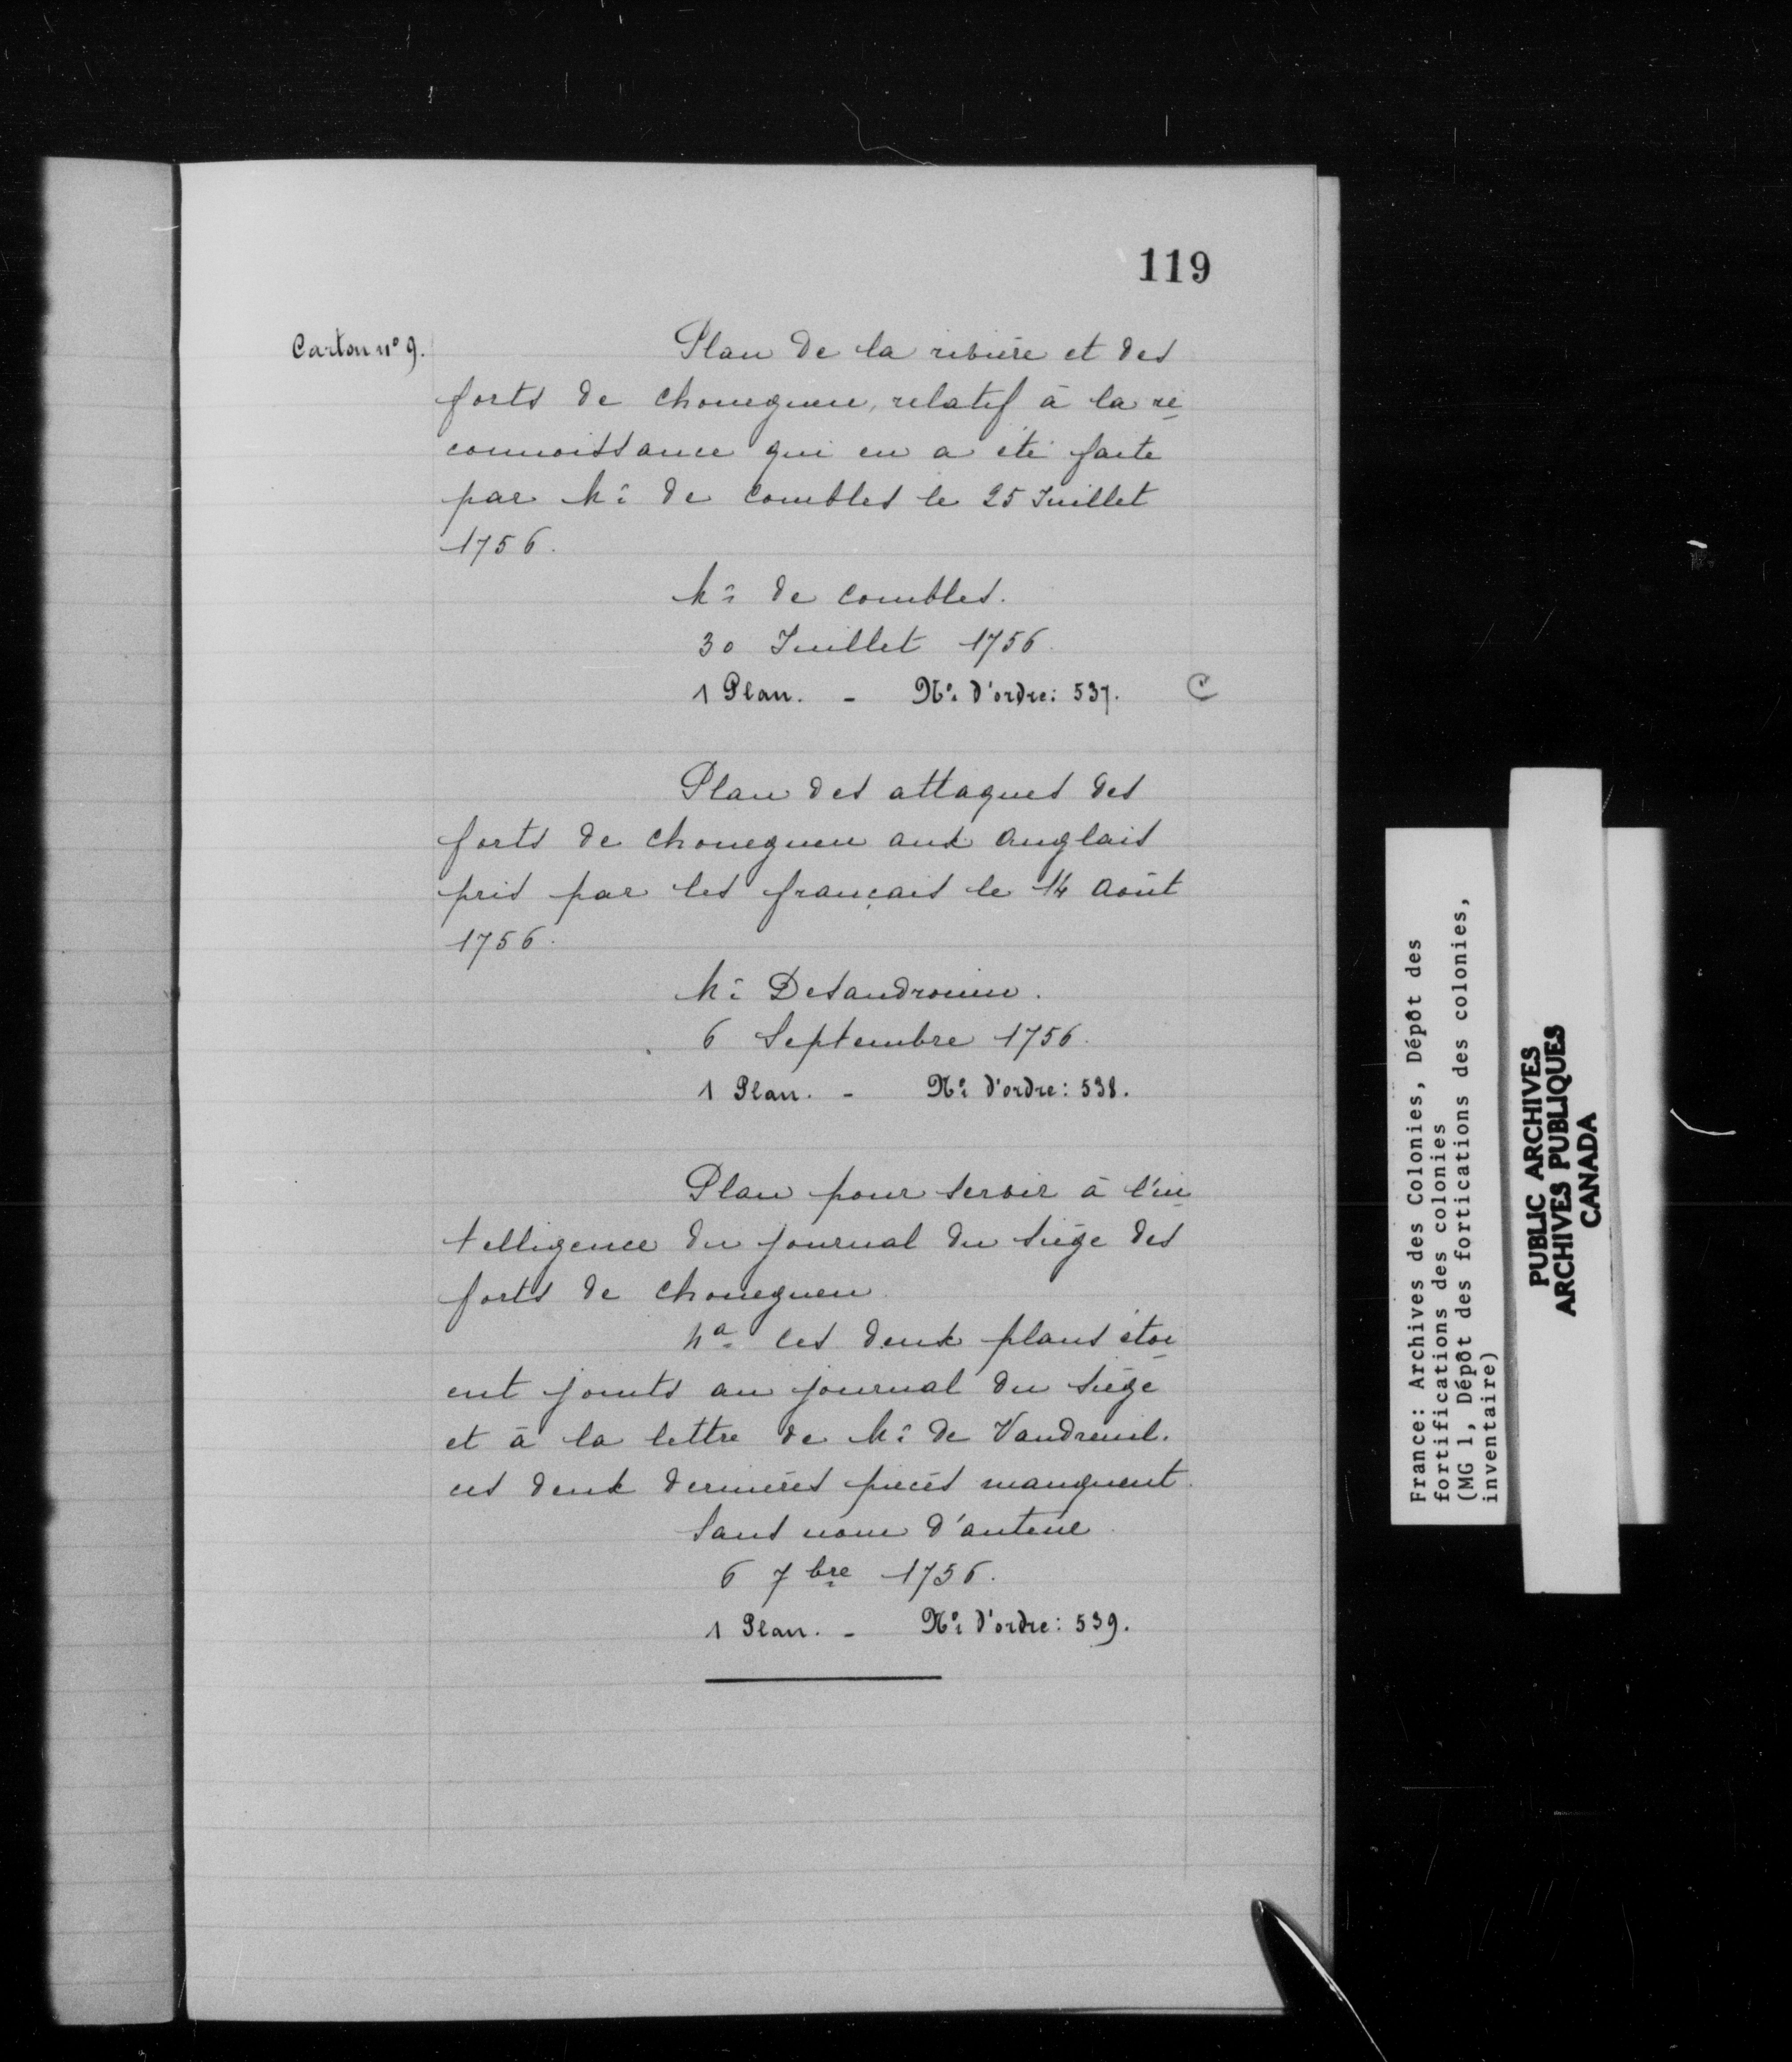 119
Carton nº 9.
Plan de la rivière et des
forts de choueguen, relatif à la re
connoissance qui en a été faite
par Mr. de Combles le 25 Juillet
1756.
Mr. de Combles.
30 Juillet 1756.
1 Plan. - No. d'ordre: 537. C
Plan des attaques des
forts de choueguen aux anglais
pris par les français le 14 Août
1756.
Mr. Desandrouin.
6 Septembre 1756.
1 Plan. - No. d'ordre: 538.
Plan pour servir à l'in
telligence du journal du siège des
forts de choueguen.
Na. les deux plans étoi
ent joints au journal du siège
et à la lettre de Mr. de Vaudreuil.
ces deux dernières pièces manquent.
Sans nom d'auteur.
6 7bre 1756.
1 Plan. - No. d'ordre: 539.
France: Archives des Colonies, Dépôt des
fortifications des colonies
(MG 1, Dépôt des fortications des colonies,
inventaire)
PUBLIC ARCHIVES
ARCHIVES PUBLIQUES
CANADA